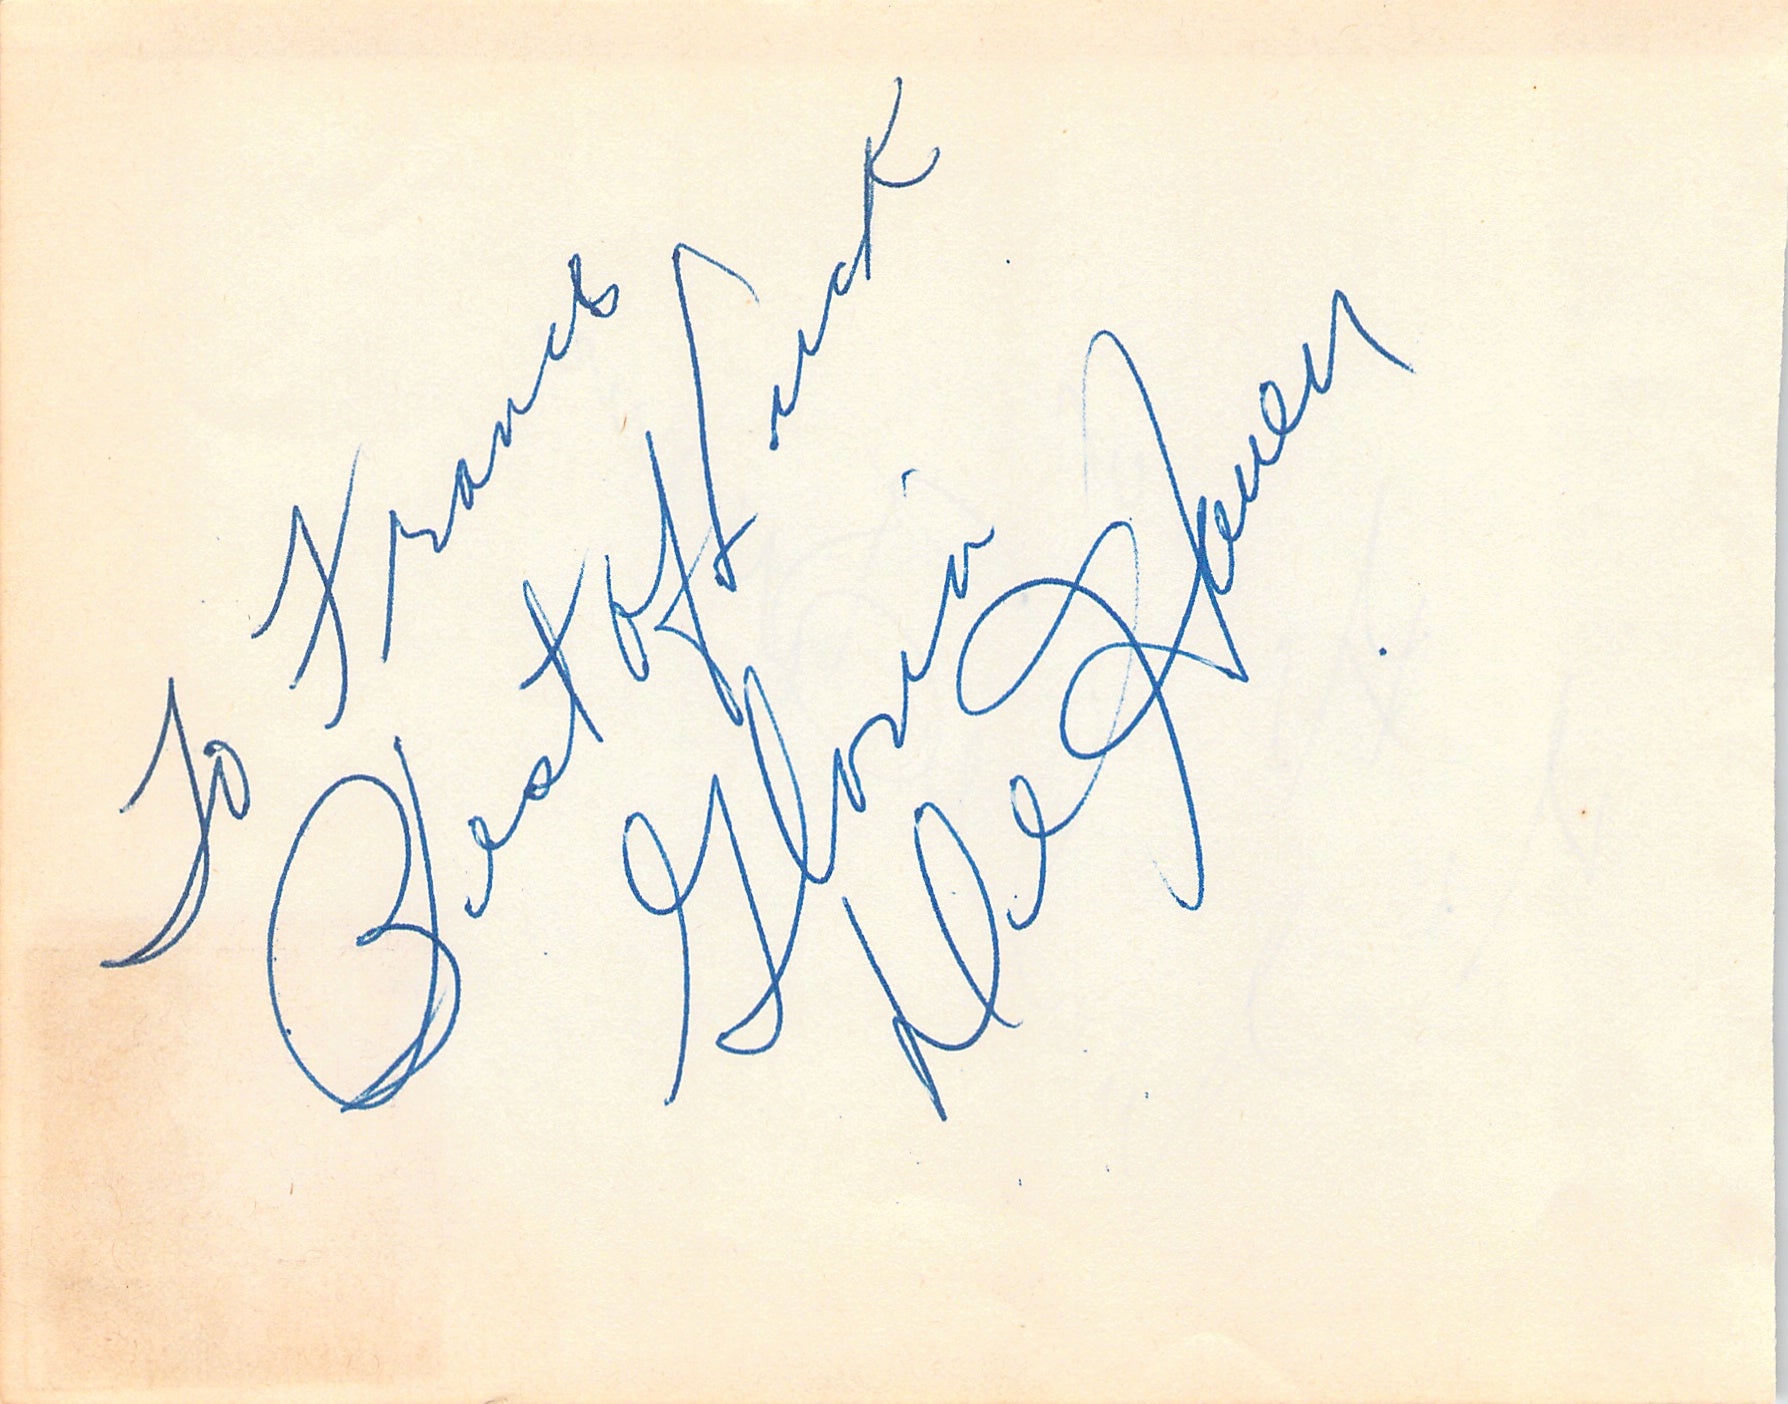 To Francis
Best of Luck
Gloria
De Haven